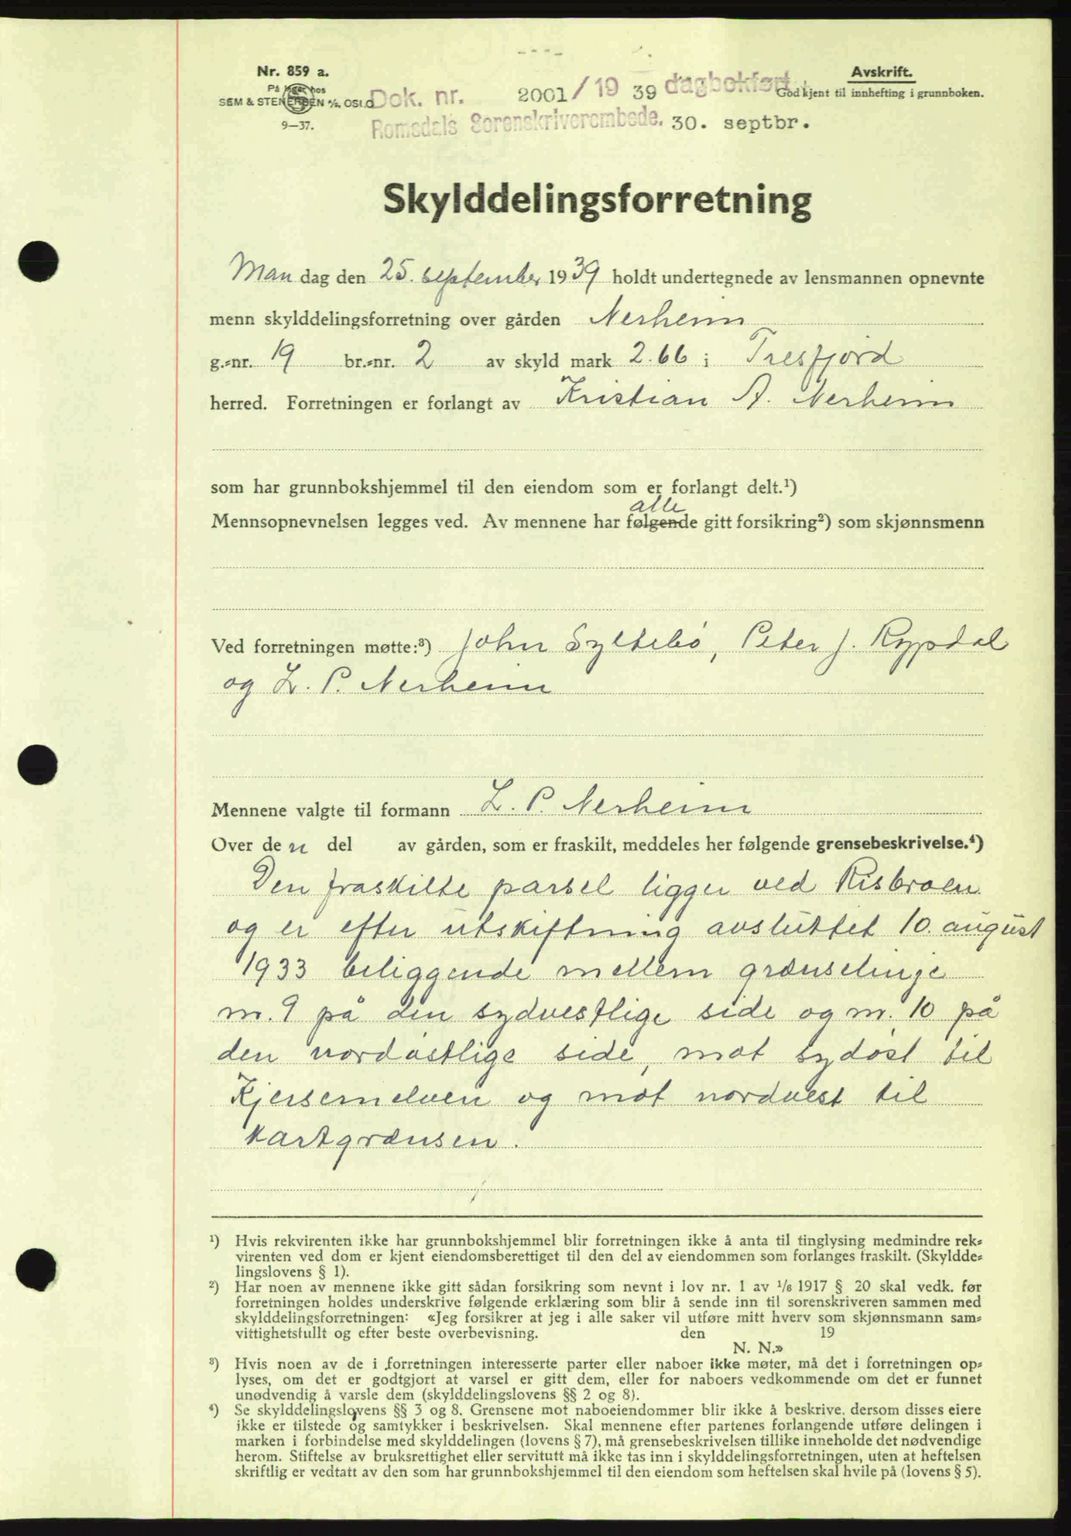 Nr. 859 a.
På lager hos
SEM & STENERSEN A/S, OSLO
9—37.
Dok. nr. 2001/1939 dagbokført
Romsdals Sorenskriverembede. 30. septbr.
Avskrift.
Godkjent til innhefting i grunnboken.
Skylddelingsforretning
Mandag den 25. september 1939 holdt undertegnede av lensmannen opnevnte
menn skylddelingsforretning over gården Nerheim
g.-nr. 19 br.-nr. 2 av skyld mark 2.66 i Tresfjord
herred. Forretningen er forlangt av Kristian A. Nerheim
som har grunnbokshjemmel til den eiendom som er forlangt delt.¹)
alle
Mennsopnevnelsen legges ved. Av mennene har følgende gitt forsikring²) som skjønnsmenn
Ved forretningen møtte:³) John Syltebø, Peter J. Rypdal
og L. P. Nerheim
Mennene valgte til formann L. P. Nerheim
Over den del av gården, som er fraskilt, meddeles her følgende grensebeskrivelse.⁴)
Den fraskilte parsel ligger ved Risbroen
og er efter utskiftning avsluttet 10. august
1933 beliggende mellem grænselinje
m. 9 på den sydvestlige side og m. 10 på
den nordøstlige side, mot sydøst til
Kjersemelven og mot nordvest til
kartgrænsen.
¹) Hvis rekvirenten ikke har grunnbokshjemmel blir forretningen ikke å anta til tinglysing medmindre rek-
virenten ved dom er kjent eiendomsberettiget til den del av eiendommen som forlanges fraskilt. (Skyldde-
lingslovens § 1).
²) Har noen av mennene ikke gitt sådan forsikring som nevnt i lov nr. 1 av 1/6 1917 § 20 skal vedk. før
forretningen holdes underskrive følgende erklæring som blir å sende inn til sorenskriveren sammen med
skylddelingsforretningen: «Jeg forsikrer at jeg i alle saker vil utføre mitt hverv som skjønnsmann sam-
vittighetsfullt og efter beste overbevisning. den 19
N. N.»
³) Hvis noen av de i forretningen interesserte parter eller naboer ikke møter, må det i forretningen op-
lyses, om det er godtgjort at varsel er gitt dem, eller for naboers vedkommende om det er funnet
unødvendig å varsle dem (skylddelingslovens §§ 2 og 8).
⁴) Se skylddelingslovens §§ 3 og 8. Grensene mot naboeiendommer blir ikke å beskrive. dersom disses eiere
ikke er tilstede og samtykker i beskrivelsen. Skal mennene efter partenes forlangende utføre delingen i
marken i forbindelse med skylddelingen (lovens § 7), må grensebeskrivelsen tillike inneholde det nødvendige
herom. Stiftelse av bruksrettighet eller servitutt må ikke tas inn i skylddelingsforretningen, uten at heftelsen
skriftlig er vedtatt av den som har grunnbokshjemmel til den eiendom som heftelsen skal hvile på (lovens § 5).